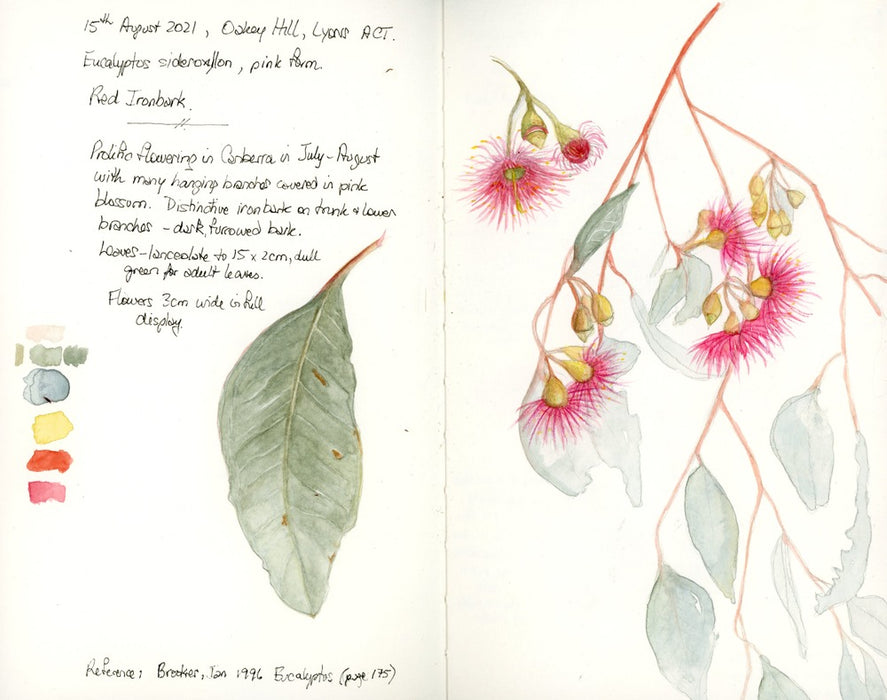 15th August 2021, Oakey Hill, Lyons ACT.
Eucalyptus sideroxylon, pink form.
Red Ironbark.
Prolific flowering in Canberra in July - August
with many hanging branches covered in pink
blossom. Distinctive ironbark on trunk & lower
branches - dark, furrowed bark.
Leaves - lanceolate to 15 x 2cm, dull
green for adult leaves.
Flowers 3cm wide in full
display.
Reference: Brooker, Ian 1996 Eucalyptus (page 175)